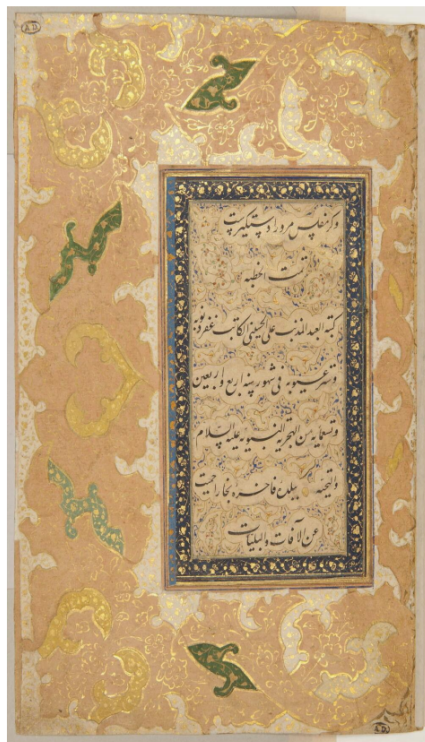 تمت الخطبه
کتبه العبد المذنب علی الحسینی الکاتب غفر ذنوبه
و ستر عیوبه فی شهور سنه اربع و اربعین
و تسعمایه من الهجریه النبویه علیه السلام
و التحیه ببلده فاخره بخارا حمیت
عن الآفات و البلیات